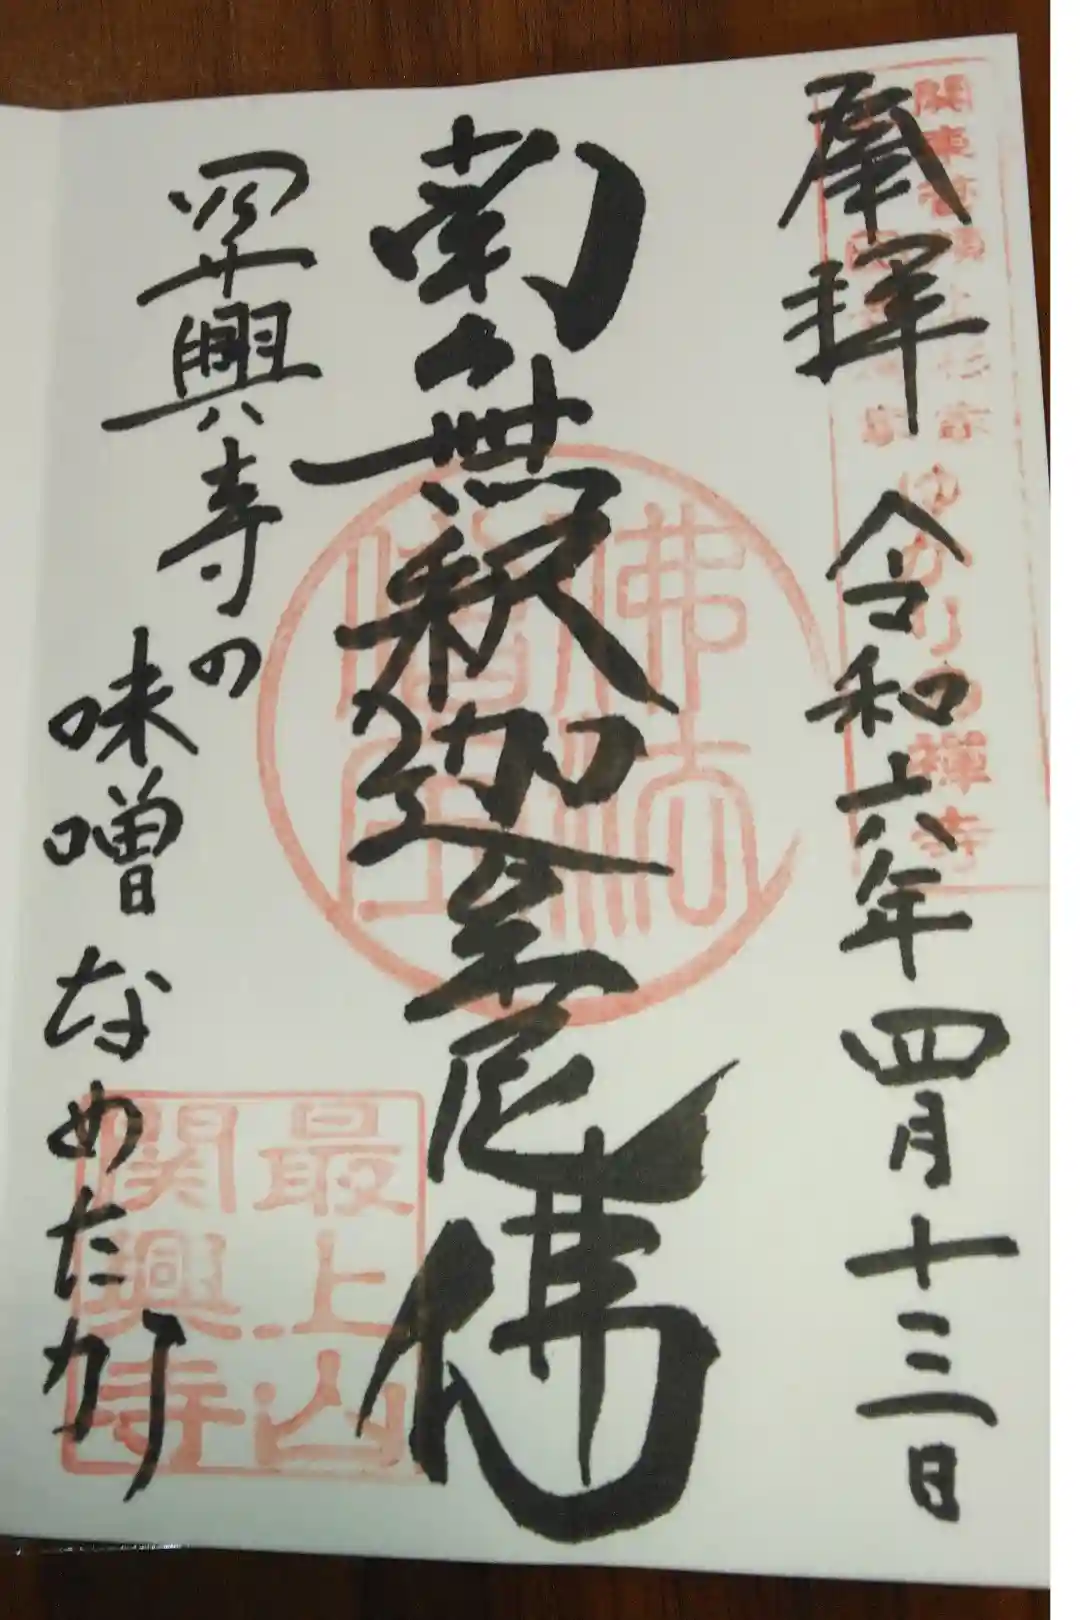 奉拝 令和六年四月十三日
関東管領上杉家
ゆかりの禅寺
南無釈迦牟尼佛
佛法僧宝
関興寺の
味噌なめたか
最上山
関興寺